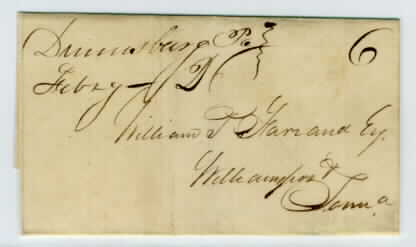 Dunnsburg Pa 6
Feby
William Farrand Esq.
Williamsport
Penna